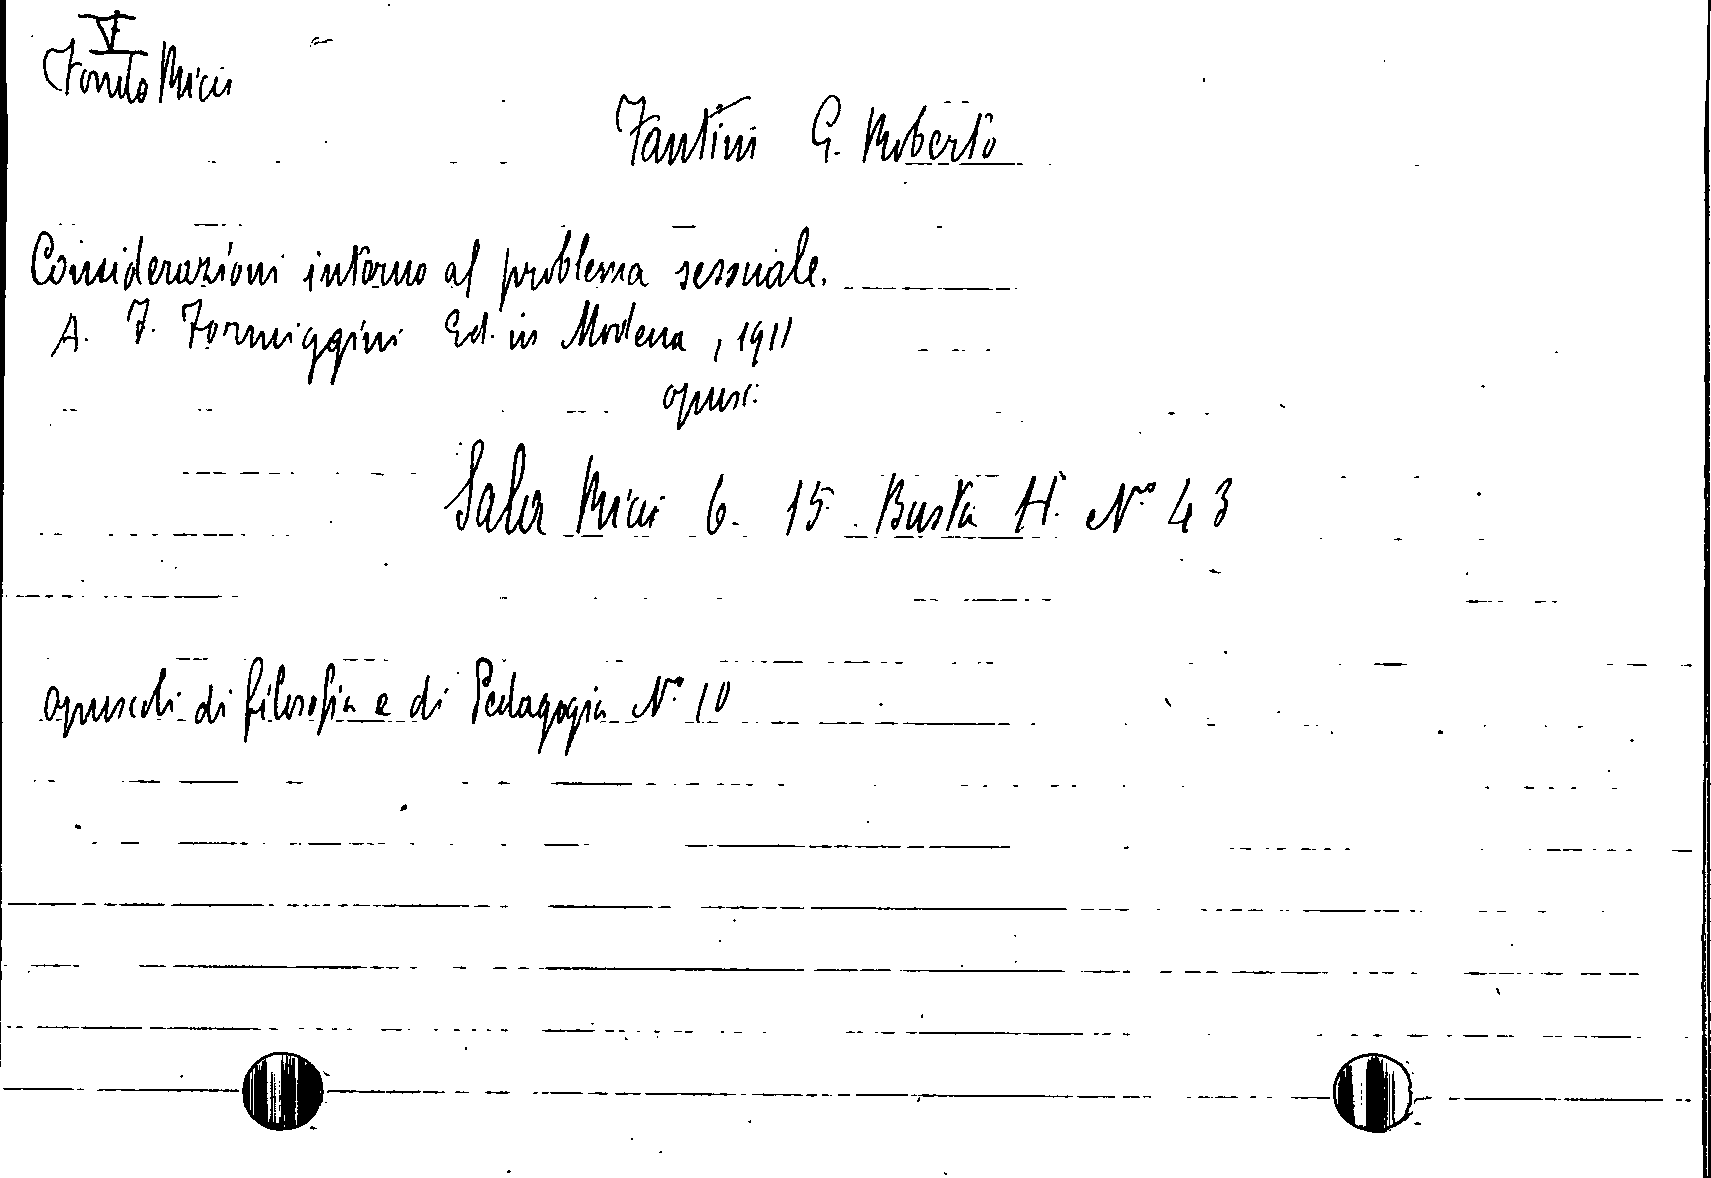 V
Fondo Ricci
Fantini G. Roberto
Considerazioni intorno al problema sessuale.
A. F. Formiggini Ed. in Modena, 1911
opusc.
Sala Ricci 6. 15. Busta H. N° 43
opuscoli di filosofia e di Pedagogia N° 10